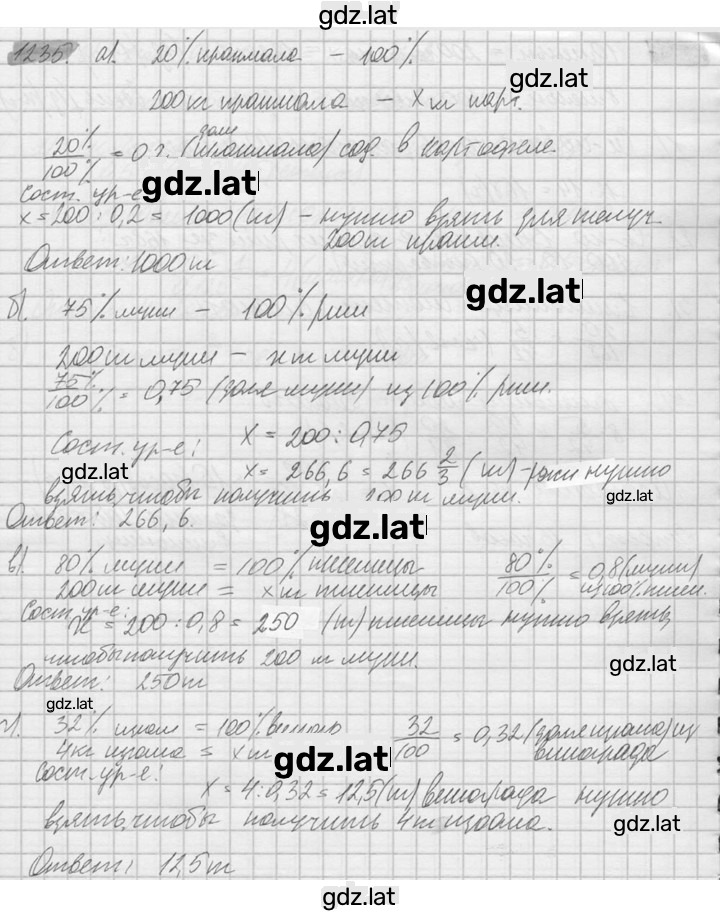 gdz.lat
1235. а). 20% крахмала – 100%
gdz.lat
200кг крахмала – x т карт.
20%/100% = 0 г. (доля крахмала) сод. в картофеле.
Сост. ур-е
gdz.lat
x = 200 : 0,2 = 1000 (т) – нужно взять для получ.
200т крахм.
Ответ: 1000т
gdz.lat
б). 75% муки – 100% ржи
200т муки – x т муки
75%/100% = 0,75 (доля муки) из 100% ржи.
Сост. ур-е: x = 200 : 0,75
gdz.lat
x = 266,6 = 266 2/3 (т) – ржи нужно
взять, чтобы получить 200т муки.
gdz.lat
Ответ: 266,6.
gdz.lat
в). 80% муки = 100% пшеницы 80%/100% = 0,8 (муки)
200т муки = x т пшеницы из 100% пшен.
Сост. ур-е:
x = 200 : 0,8 = 250 (т) пшеницы нужно взять,
чтобы получить 200 т муки.
gdz.lat
Ответ: 250т
gdz.lat
г). 32% изюм = 100% виногр 32/100 = 0,32 (доля изюма) из
4кг изюма = x т винограда
gdz.lat
Сост. ур-е:
x = 4 : 0,32 = 12,5 (т) винограда нужно
взять, чтобы получить 4т изюма.
gdz.lat
Ответ: 12,5т
gdz.lat